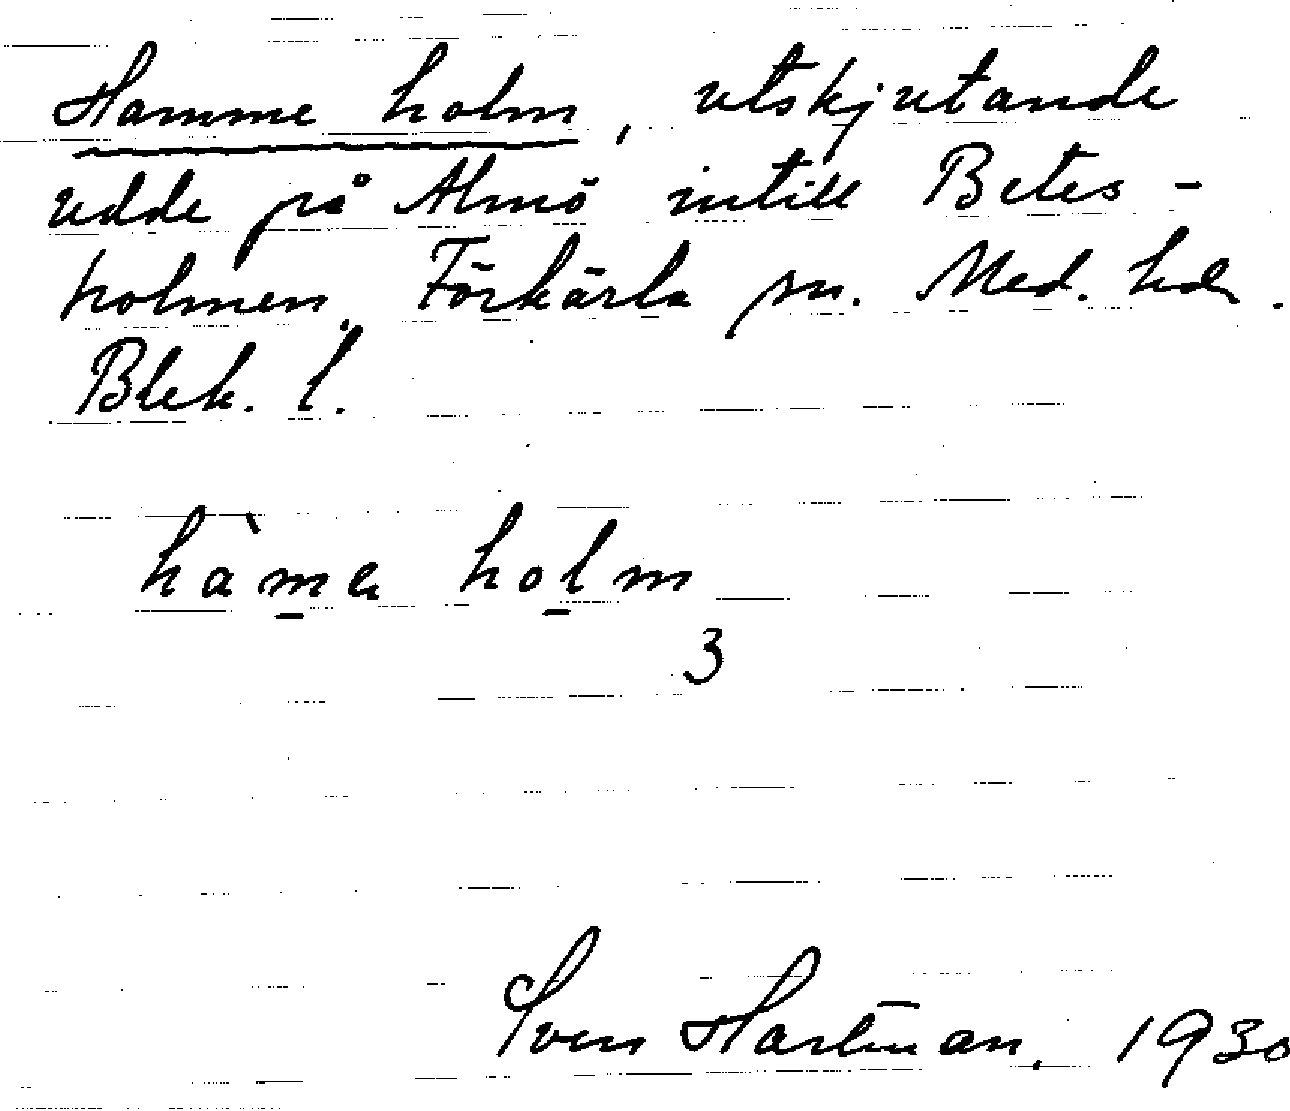 Hamme holm, utskjutande
udde på Almö intill Betes-
holmen, Förkärla sn. Med. hd.
Blek. l.
hàmə holm
3
Sven Hartman. 1930